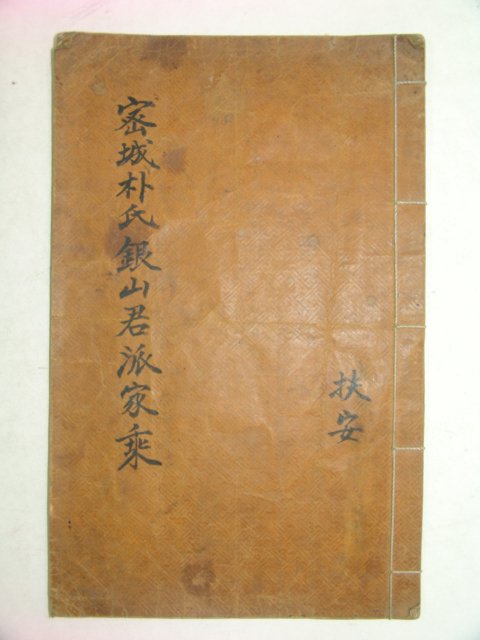 密城朴氏銀山君派家乘
扶安